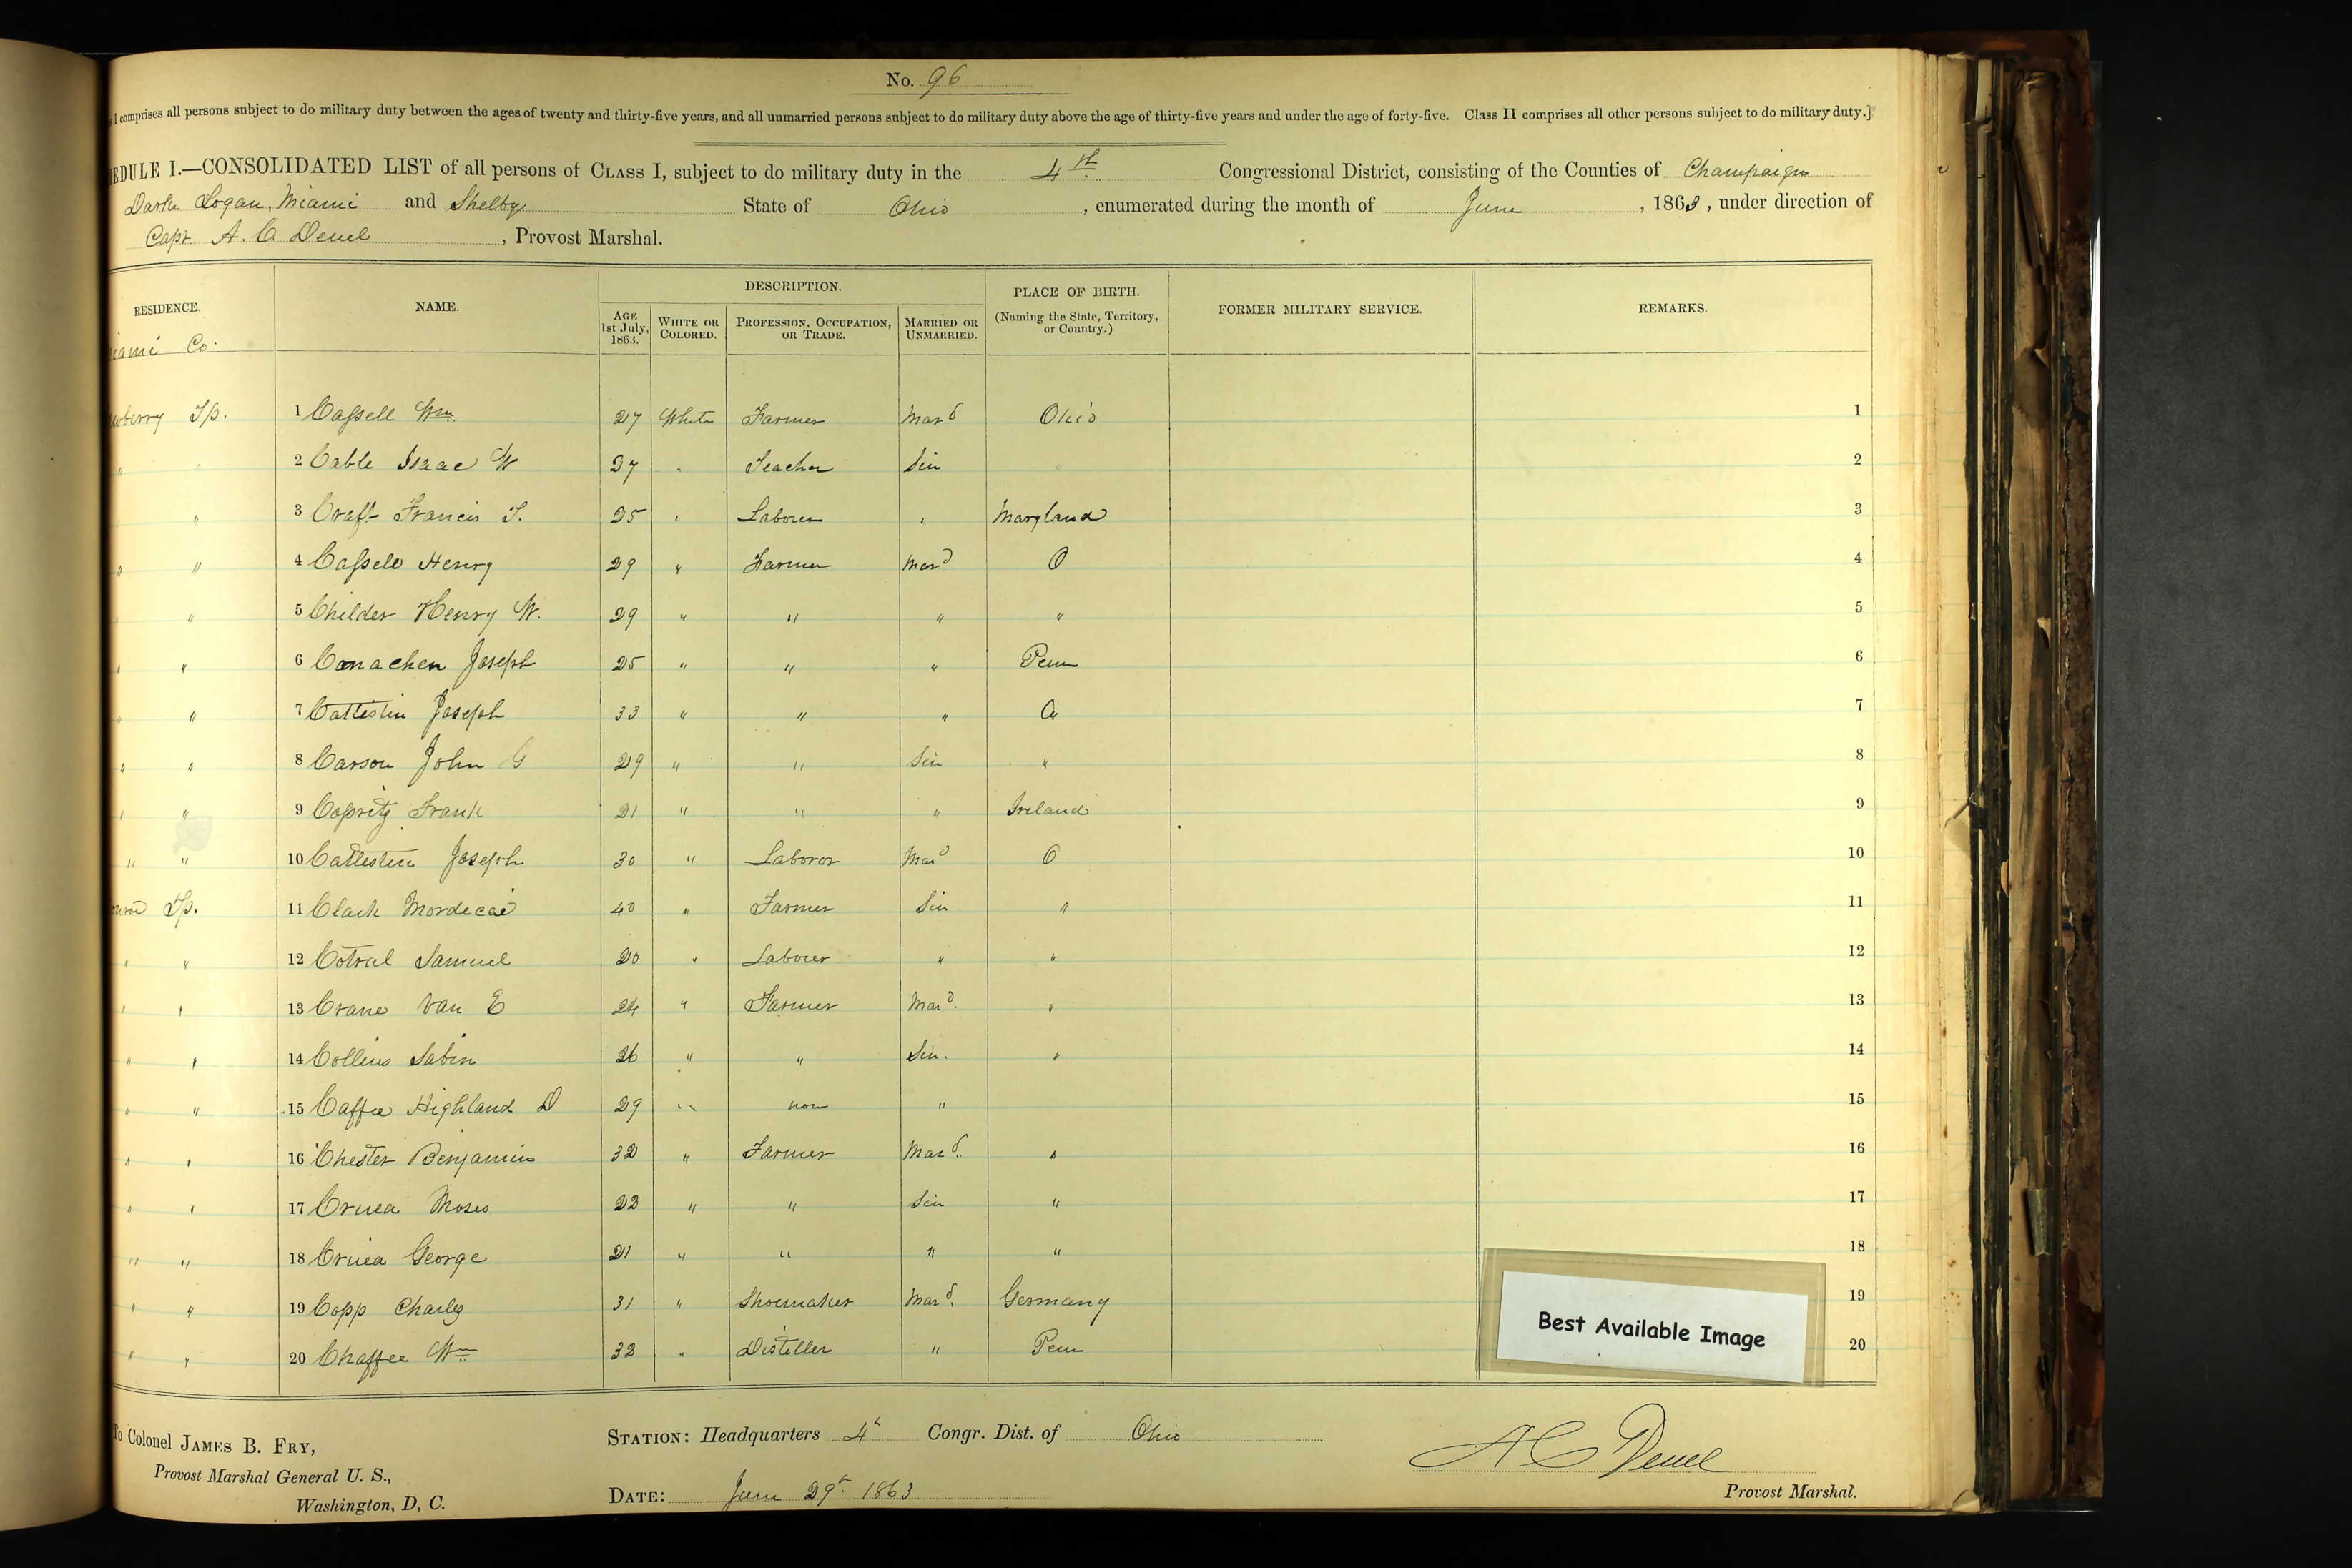 No. 96
I comprises all persons subject to do military duty between the ages of twenty and thirty-five years, and all unmarried persons subject to do military duty above the age of thirty-five years and under the age of forty-five. Class II comprises all other persons subject to do military duty.]
EDULE I.—CONSOLIDATED LIST of all persons of CLASS I, subject to do military duty in the 4th Congressional District, consisting of the Counties of Champaign
Darke Logan, Miami and Shelby State of Ohio, enumerated during the month of June, 1863, under direction of
Capt A. C Deuel, Provost Marshal.
RESIDENCE. NAME. DESCRIPTION. PLACE OF BIRTH. (Naming the State, Territory, or Country.) FORMER MILITARY SERVICE. REMARKS.
AGE 1st July, 1863. WHITE OR COLORED. PROFESSION, OCCUPATION, OR TRADE. MARRIED OR UNMARRIED.
iami Co.
wberry Tp. 1 Cassell Wm 27 White Farmer Mard Ohio 1
2 Cable Isaac W 27 " Teacher Sin 2
" 3 Craft Francis T. 25 " Laborer " Maryland 3
" " 4 Cassell Henry 29 " Farmer Mard O 4
" 5 Childer Henry W. 29 " " " " 5
" " 6 Conachen Joseph 25 " " " Penn 6
" " 7 Cattestin Joseph 33 " " " O 7
" " 8 Carson John G 29 " " Sin " 8
" " 9 Copritz Frank 21 " " " Ireland 9
" " 10 Cattestin Joseph 30 " Laboror Mard O 10
Tp. 11 Clark Mordecai 40 " Farmer Sin " 11
" " 12 Cotral Samuel 20 " Laborer " " 12
" " 13 Crane Van E 24 " Farmer Mard. " 13
" " 14 Collins Sabin 26 " " Sin. " 14
" " 15 Caffee Highland D 29 " non " 15
" " 16 Chester Benjamin 32 " Farmer Mard. " 16
" " 17 Cruea Moses 22 " " Sin " 17
" " 18 Cruea George 21 " " " " 18
" " 19 Copp Charles 31 " Shoemaker Mard. Germany 19
" " 20 Chaffee Wm 32 " Distiller " Penn 20
Best Available Image
To Colonel JAMES B. FRY,
Provost Marshal General U. S.,
Washington, D, C.
STATION: Headquarters 4th Congr. Dist. of Ohio
DATE: June 29th 1863
A C Deuel
Provost Marshal.